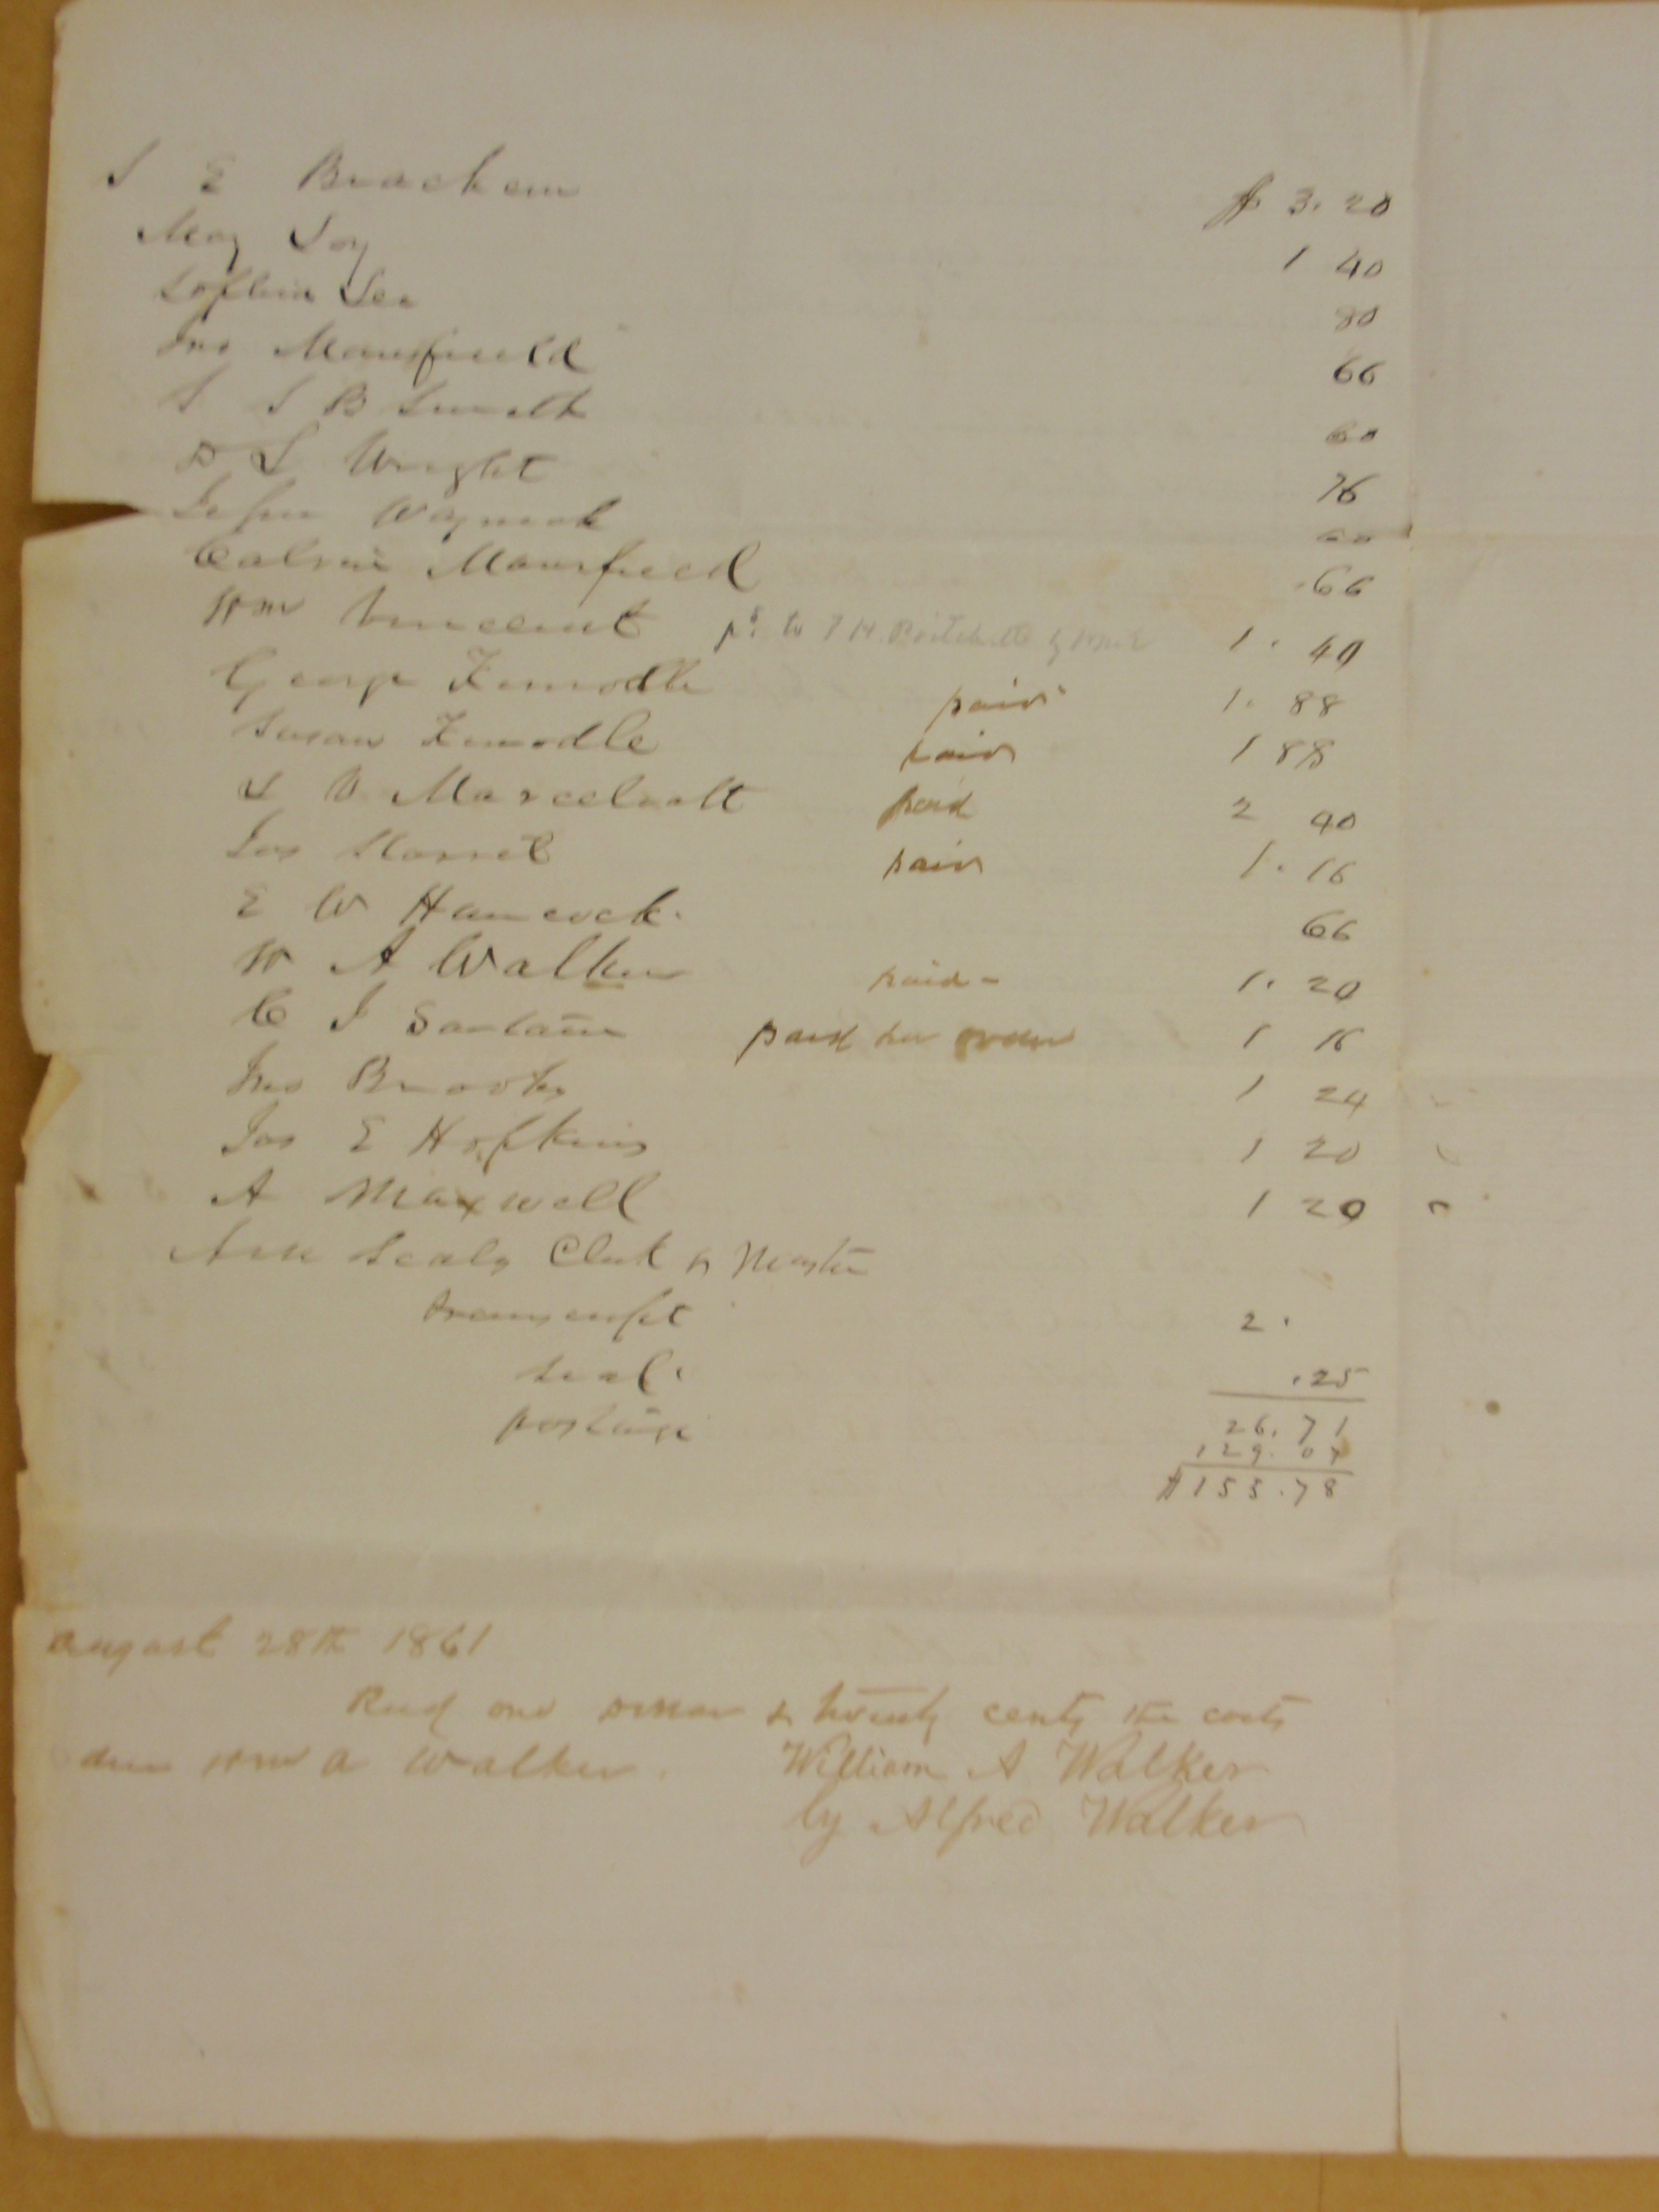 S E Beachem $ 3.20
May Loy 1 40
Lee 80
Jno Mansfield 66
S S B Smith 60
D S Wright 76
60
Calvin Mansfield .66
Wm Vincent pd to 1.40
George Zimodle paid 1.88
Susan Zimodle paid 1 88
Marcelliott paid 2 40
Jas Harriet paid 1.16
E W Hancock. 66
W A Walker paid - 1.20
C J paid her order 1 16
Jno Brooks 1 24
Jas E Hopkins 1 20
A Maxwell 1 20
Scales Clerk & Master
transcript 2.
seal. .25
postage
26.71
129.07
$155.78
august 28th 1861
Recd one dollar & twenty cents the costs
due Wm A Walker. William A Walker
by Alfred Walker